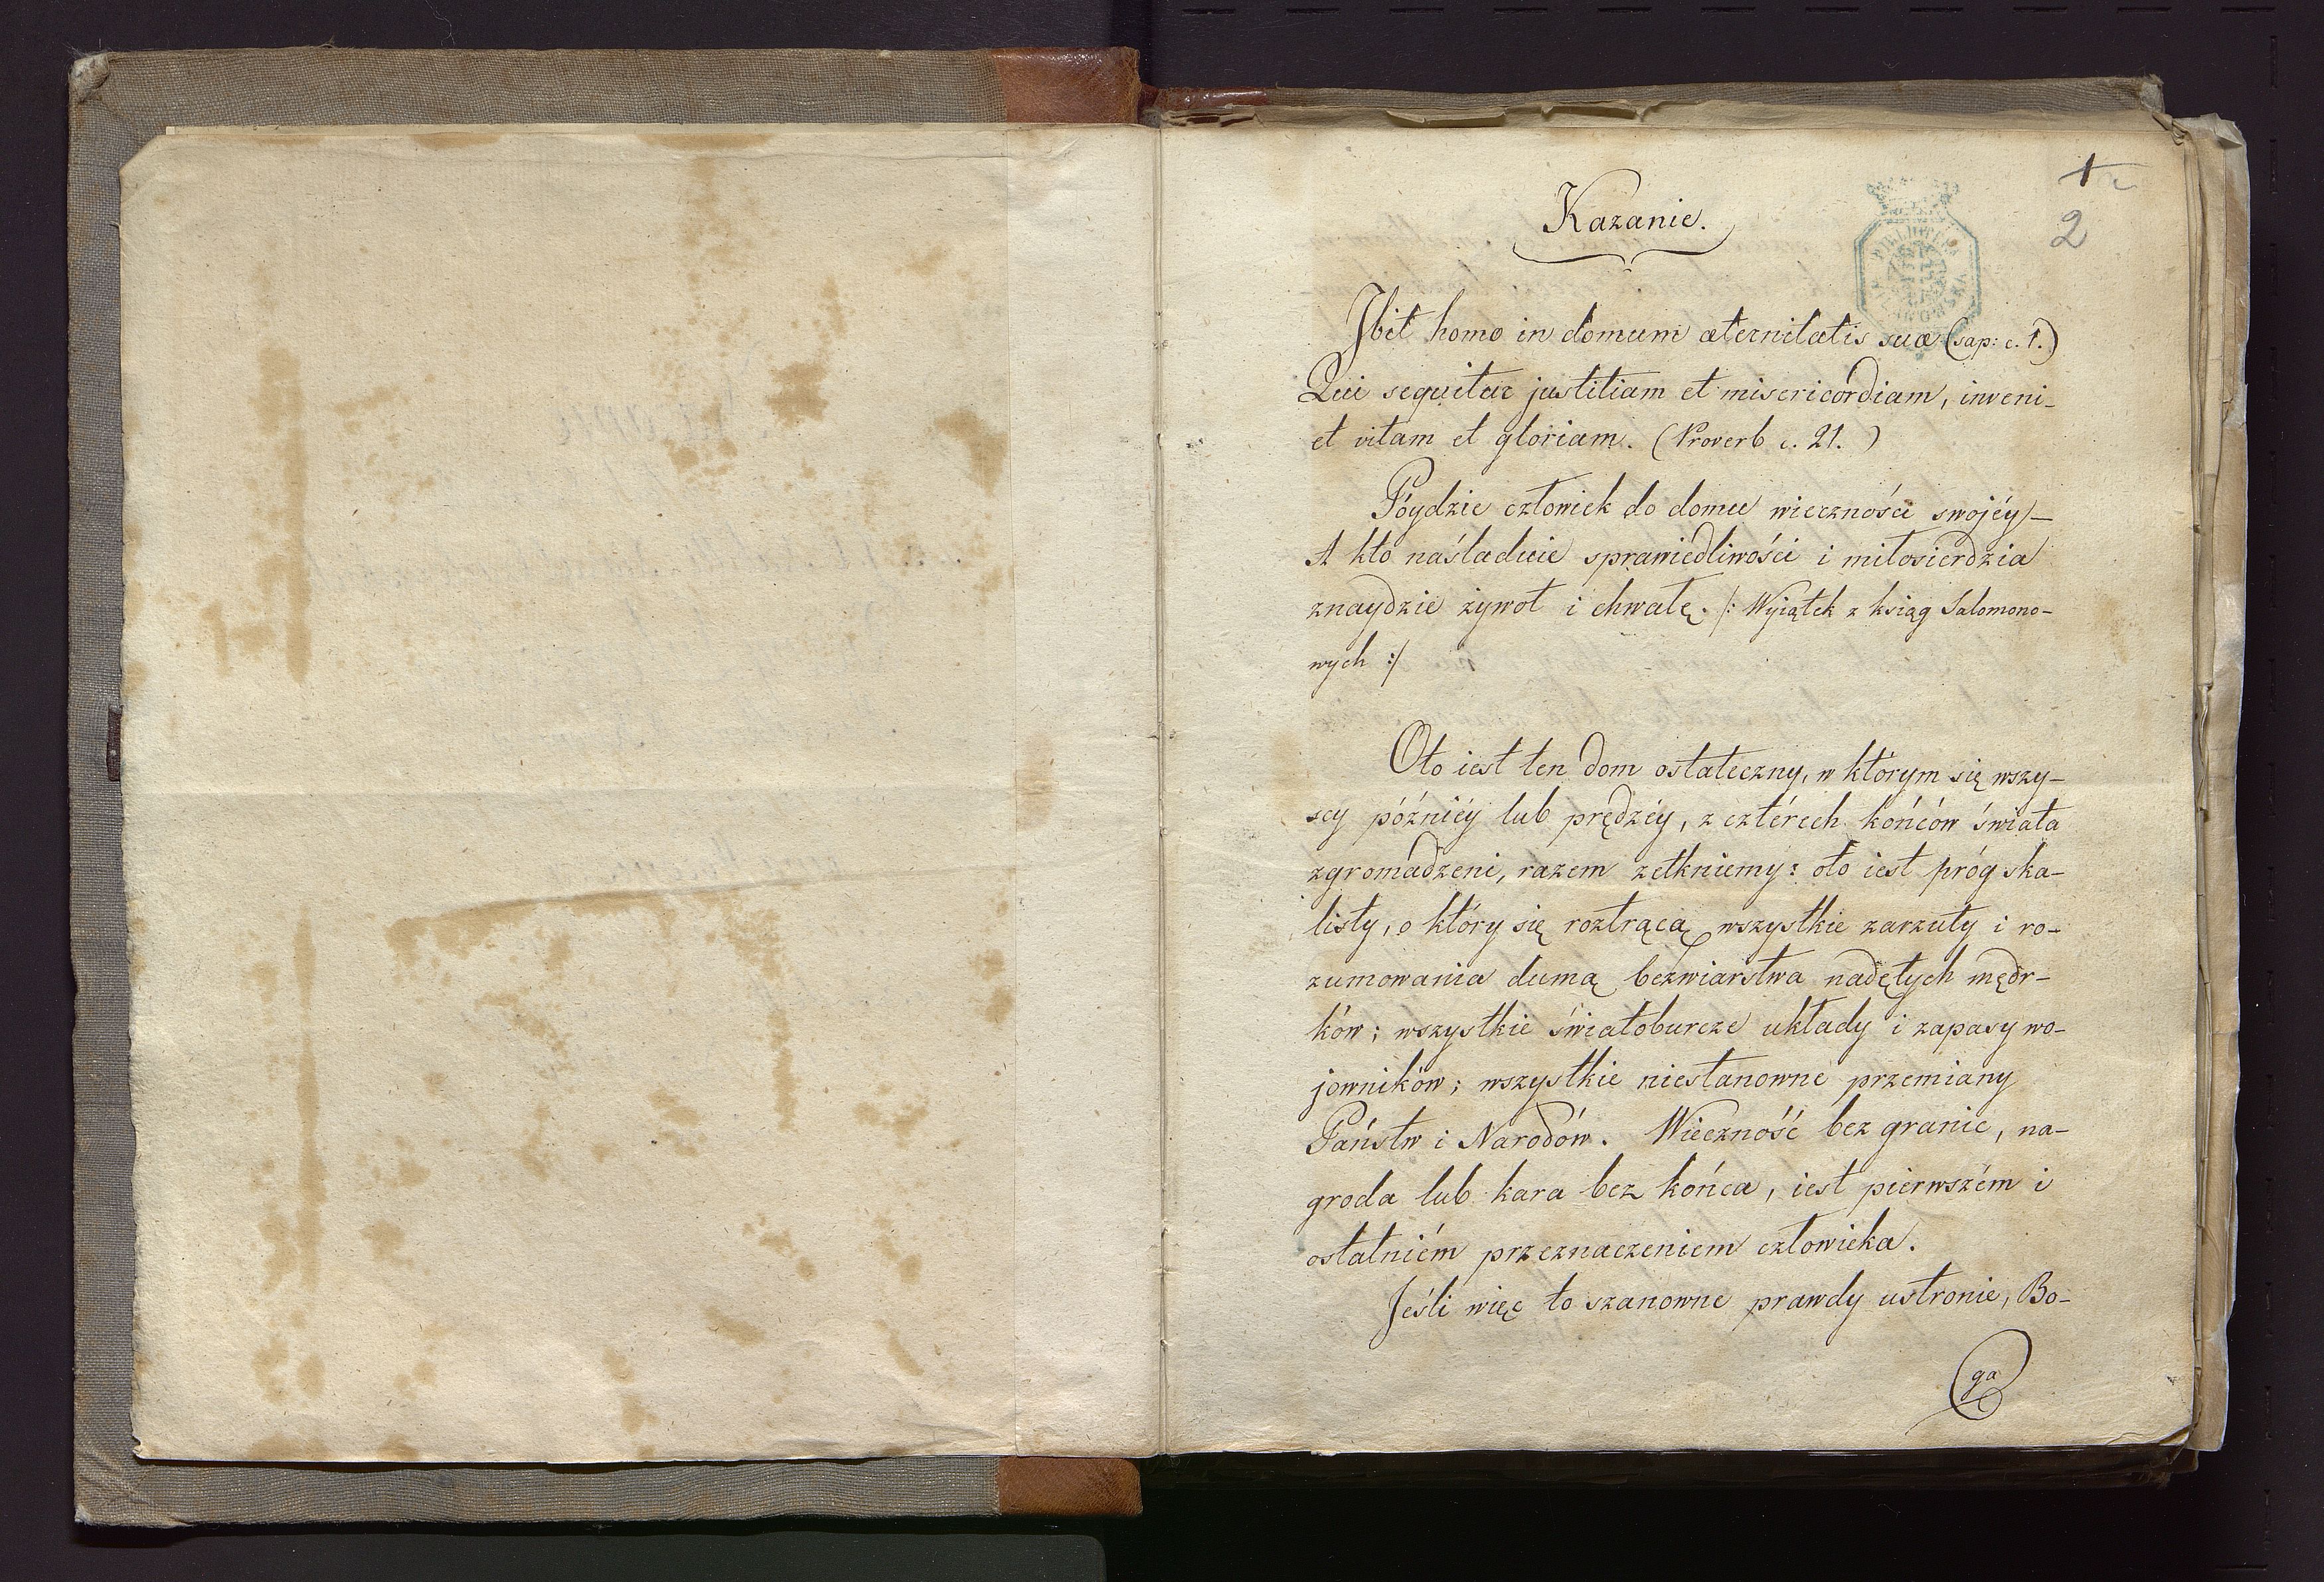 1
2
Kazanie.
Ibit homo in domum æternitatis suæ (sap: c. 1.)
Qui sequitur justitiam et misericordiam, inveni-
et vitam et gloriam. (Proverb c. 21.)
Póydzie człowiek do domu wieczności swojéy,—
A kto naśladuie sprawiedliwości i miłosierdzia
znaydzie żywot i chwałę. /: Wyiątek z ksiąg Salomono-
wych :/
Oto iest ten dom ostateczny, w którym się wszy-
scy późniéy lub prędzéy, z cztérech końców świata
zgromadzeni, razem zetkniemy: oto iest próg ska-
listy, o który się roztrącą wszystkie zarzuty i ro-
zumowania dumą bezwiarstwa nadętych mędr-
ków; wszystkie światoburcze układy i zapasy wo-
jowników; wszystkie niestanowne przemiany
Państw i Narodów. Wieczność bez granic, na-
groda lub kara bez końca, iest pierwszém i
ostatniém przeznaczeniem człowieka.
Jeśli więc to szanowne prawdy ustronie, Bo-
ga